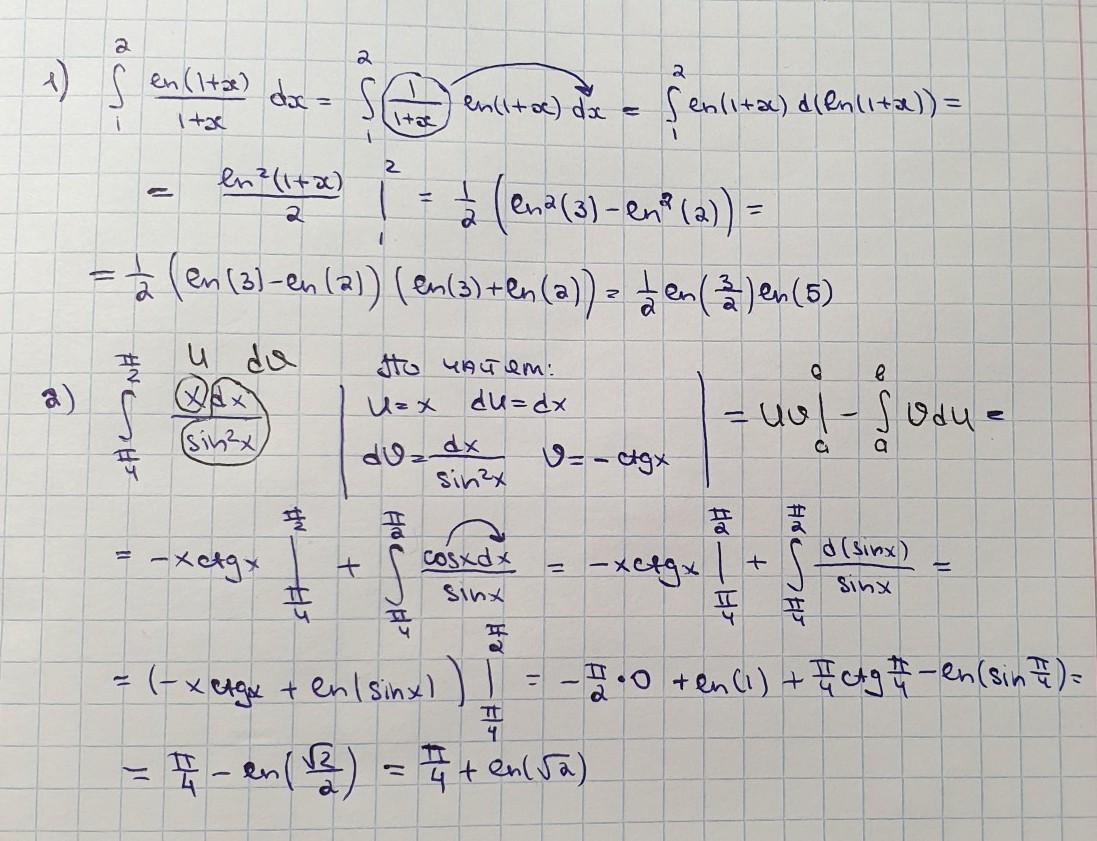 1) ∫₁² ln(1+x)/(1+x) dx = ∫₁² (1/(1+x)) ln(1+x) dx = ∫₁² ln(1+x) d(ln(1+x)) =
= ln²(1+x)/2 |₁² = 1/2 (ln²(3) - ln²(2)) =
= 1/2 (ln(3) - ln(2)) (ln(3) + ln(2)) = 1/2 ln(3/2) ln(5)
u dv По частям:
2) ∫_{π/4}^{π/2} x dx/sin²x | u = x du = dx dv = dx/sin²x v = -ctgx | = uv|_a^b - ∫_a^b v du =
= -x ctgx |_{π/4}^{π/2} + ∫_{π/4}^{π/2} cosx dx/sinx = -x ctgx |_{π/4}^{π/2} + ∫_{π/4}^{π/2} d(sinx)/sinx =
= (-x ctgx + ln(sinx)) |_{π/4}^{π/2} = -π/2 · 0 + ln(1) + π/4 ctg π/4 - ln(sin π/4) =
= π/4 - ln(√2/2) = π/4 + ln(√2)